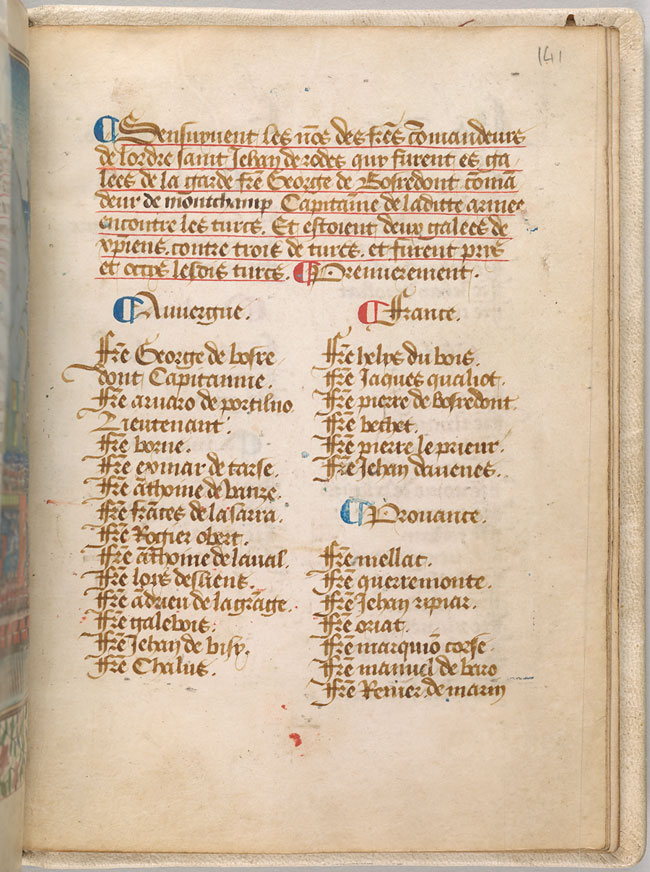 141
Sensuyuent les nōes des frēs cōmandeurs
de lordre saint Jehan de rodes quy furent es ga
lees de la garde frē George de Bosredont cōmā
deur de montchamp Capitaine de laditte armee
encontre les turcs. Et estoient deux galees de
xpiens. contre trois de turcs. et furent pris
et occis lesdis turcs. Premierement.
Auuergne.
Frē George de bosre
dont Capitanne.
Frē aruaro de portiluo
Lieutenant.
Frē borne.
Frē exmar de tarse.
Frē āthoine de banze.
Frē frāces de la sarra.
Frē Rogier obert.
Frē āthoine de laual.
Frē loys desliens.
Frē ādrieu de la grāge.
Frē galebois.
Frē Jehan de visy.
Frē Chalus.
France.
Frē helys du bois.
Frē Jaques qualiot.
Frē pierre de bosredont.
Frē bethet.
Frē pierre le prieur.
Frē Jehan dauenes.
Prouance.
Frē mellat.
Frē querremonte.
Frē Jehan ripiar.
Frē oriat.
Frē marquiō corse.
Frē manuel de baro
Frē Renier de marin